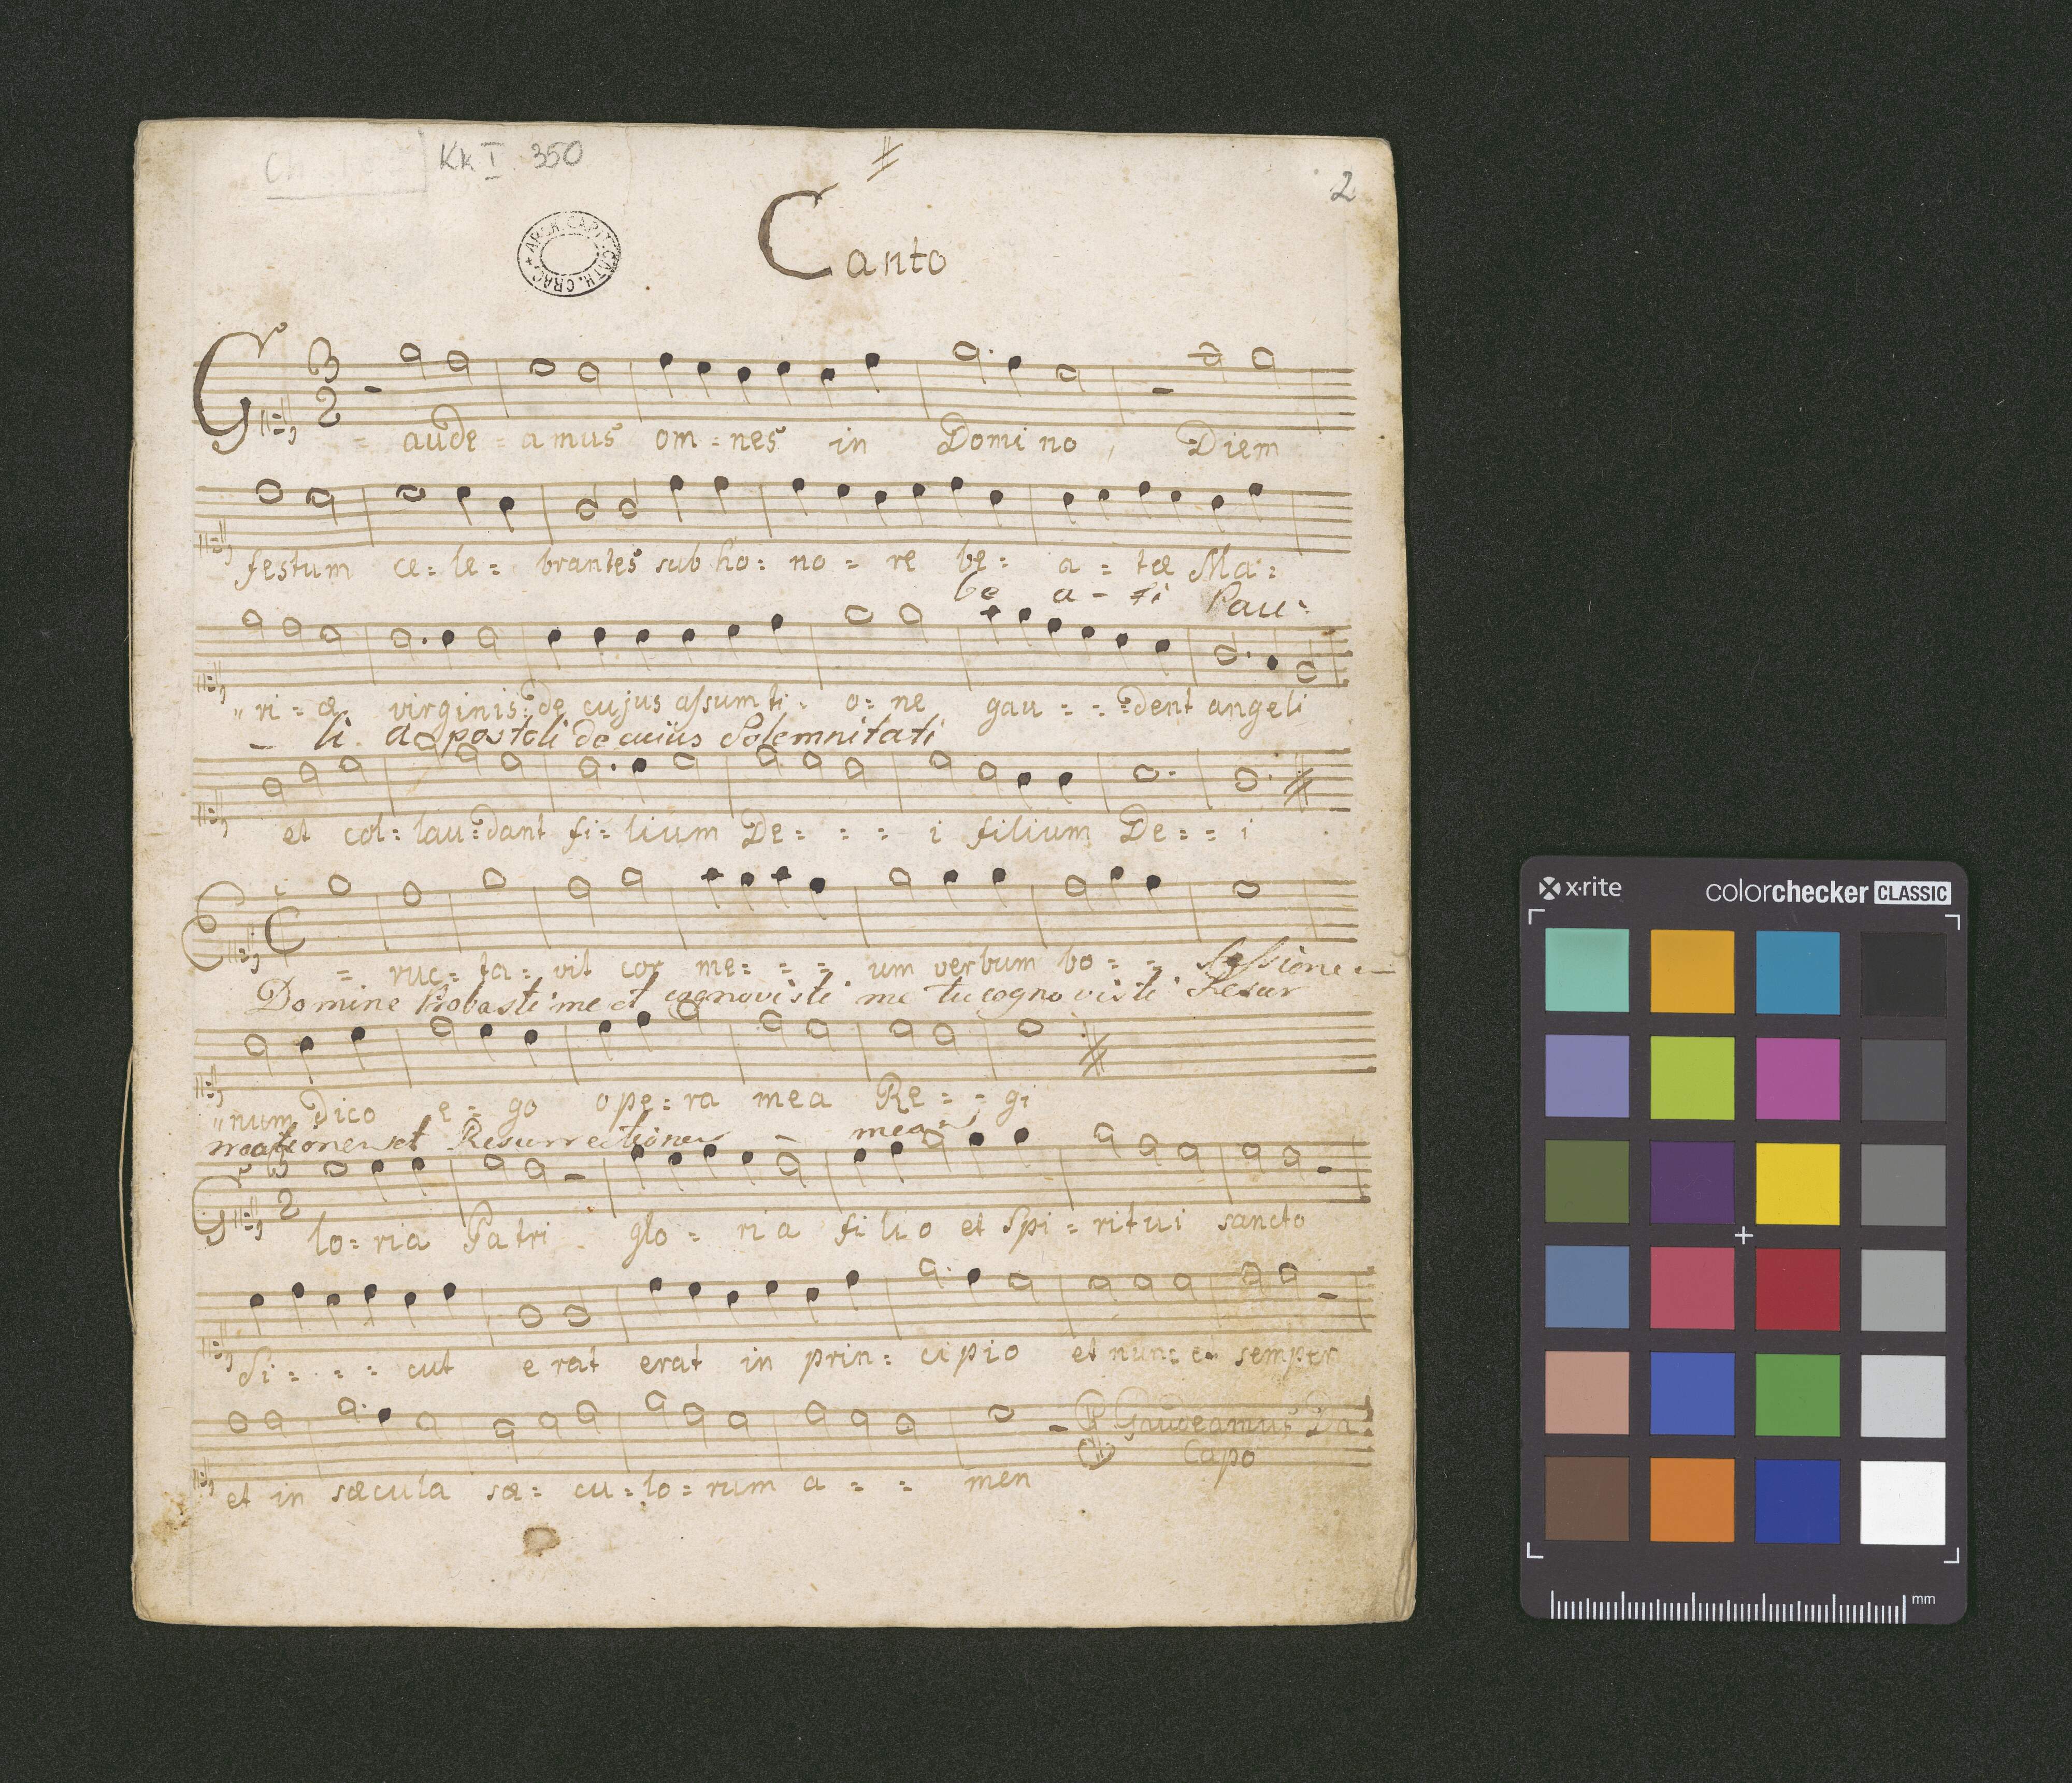 Kk I. 350
2
ARCH. CAPIT. CATH. CRAC.
Canto
3
2
G = aude = amus om = nes in Domino, Diem
festum ce = le = brantes sub ho = no = re be = a = tæ Ma =
be a - ti Pau =
"ri = æ virginis = de cujus assumti = o = ne gau = = = dent angeli
- li Apostoli de cuius Solemnitati
et col = lau = dant fi = lium De = = = i filium De = = i
C
E = ruc = ta = vit cor me = = = um verbum bo = = Sessionem
Domine Probasti me et cognovisti me tu cognovisti Resur
"num dico e = go ope = ra mea Re = = gi
et Resurrectionem - meam
3
2
Glo = ria Patri glo = ria filio et Spi = ritui sancto
Si = = = cut erat erat in prin = cipio et nunc et semper
Gaudeamus Da
Capo
et in sæcula sæ = cu = lo = rum a = = men
x·rite colorchecker CLASSIC
mm